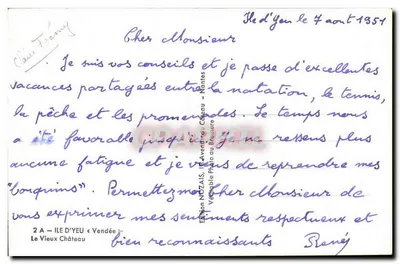 Ile d'Yeu le 7 aout 1951
Cher Monsieur
Je suis vos conseils et je passe d'excellentes
vacances partagées entre la natation, le tennis,
la pêche et les promenades. Le temps nous
a été favorable jusqu'ici. Je ne ressens plus
aucune fatigue et je viens de reprendre mes
"bouquins". Permettez moi Cher Monsieur de
vous exprimer mes sentiments respectueux et
bien reconnaissants René
2 A - ILE D'YEU « Vendée »
Le Vieux Château
Edition NOZAIS, Nantes
Véritable Photo au Bromure